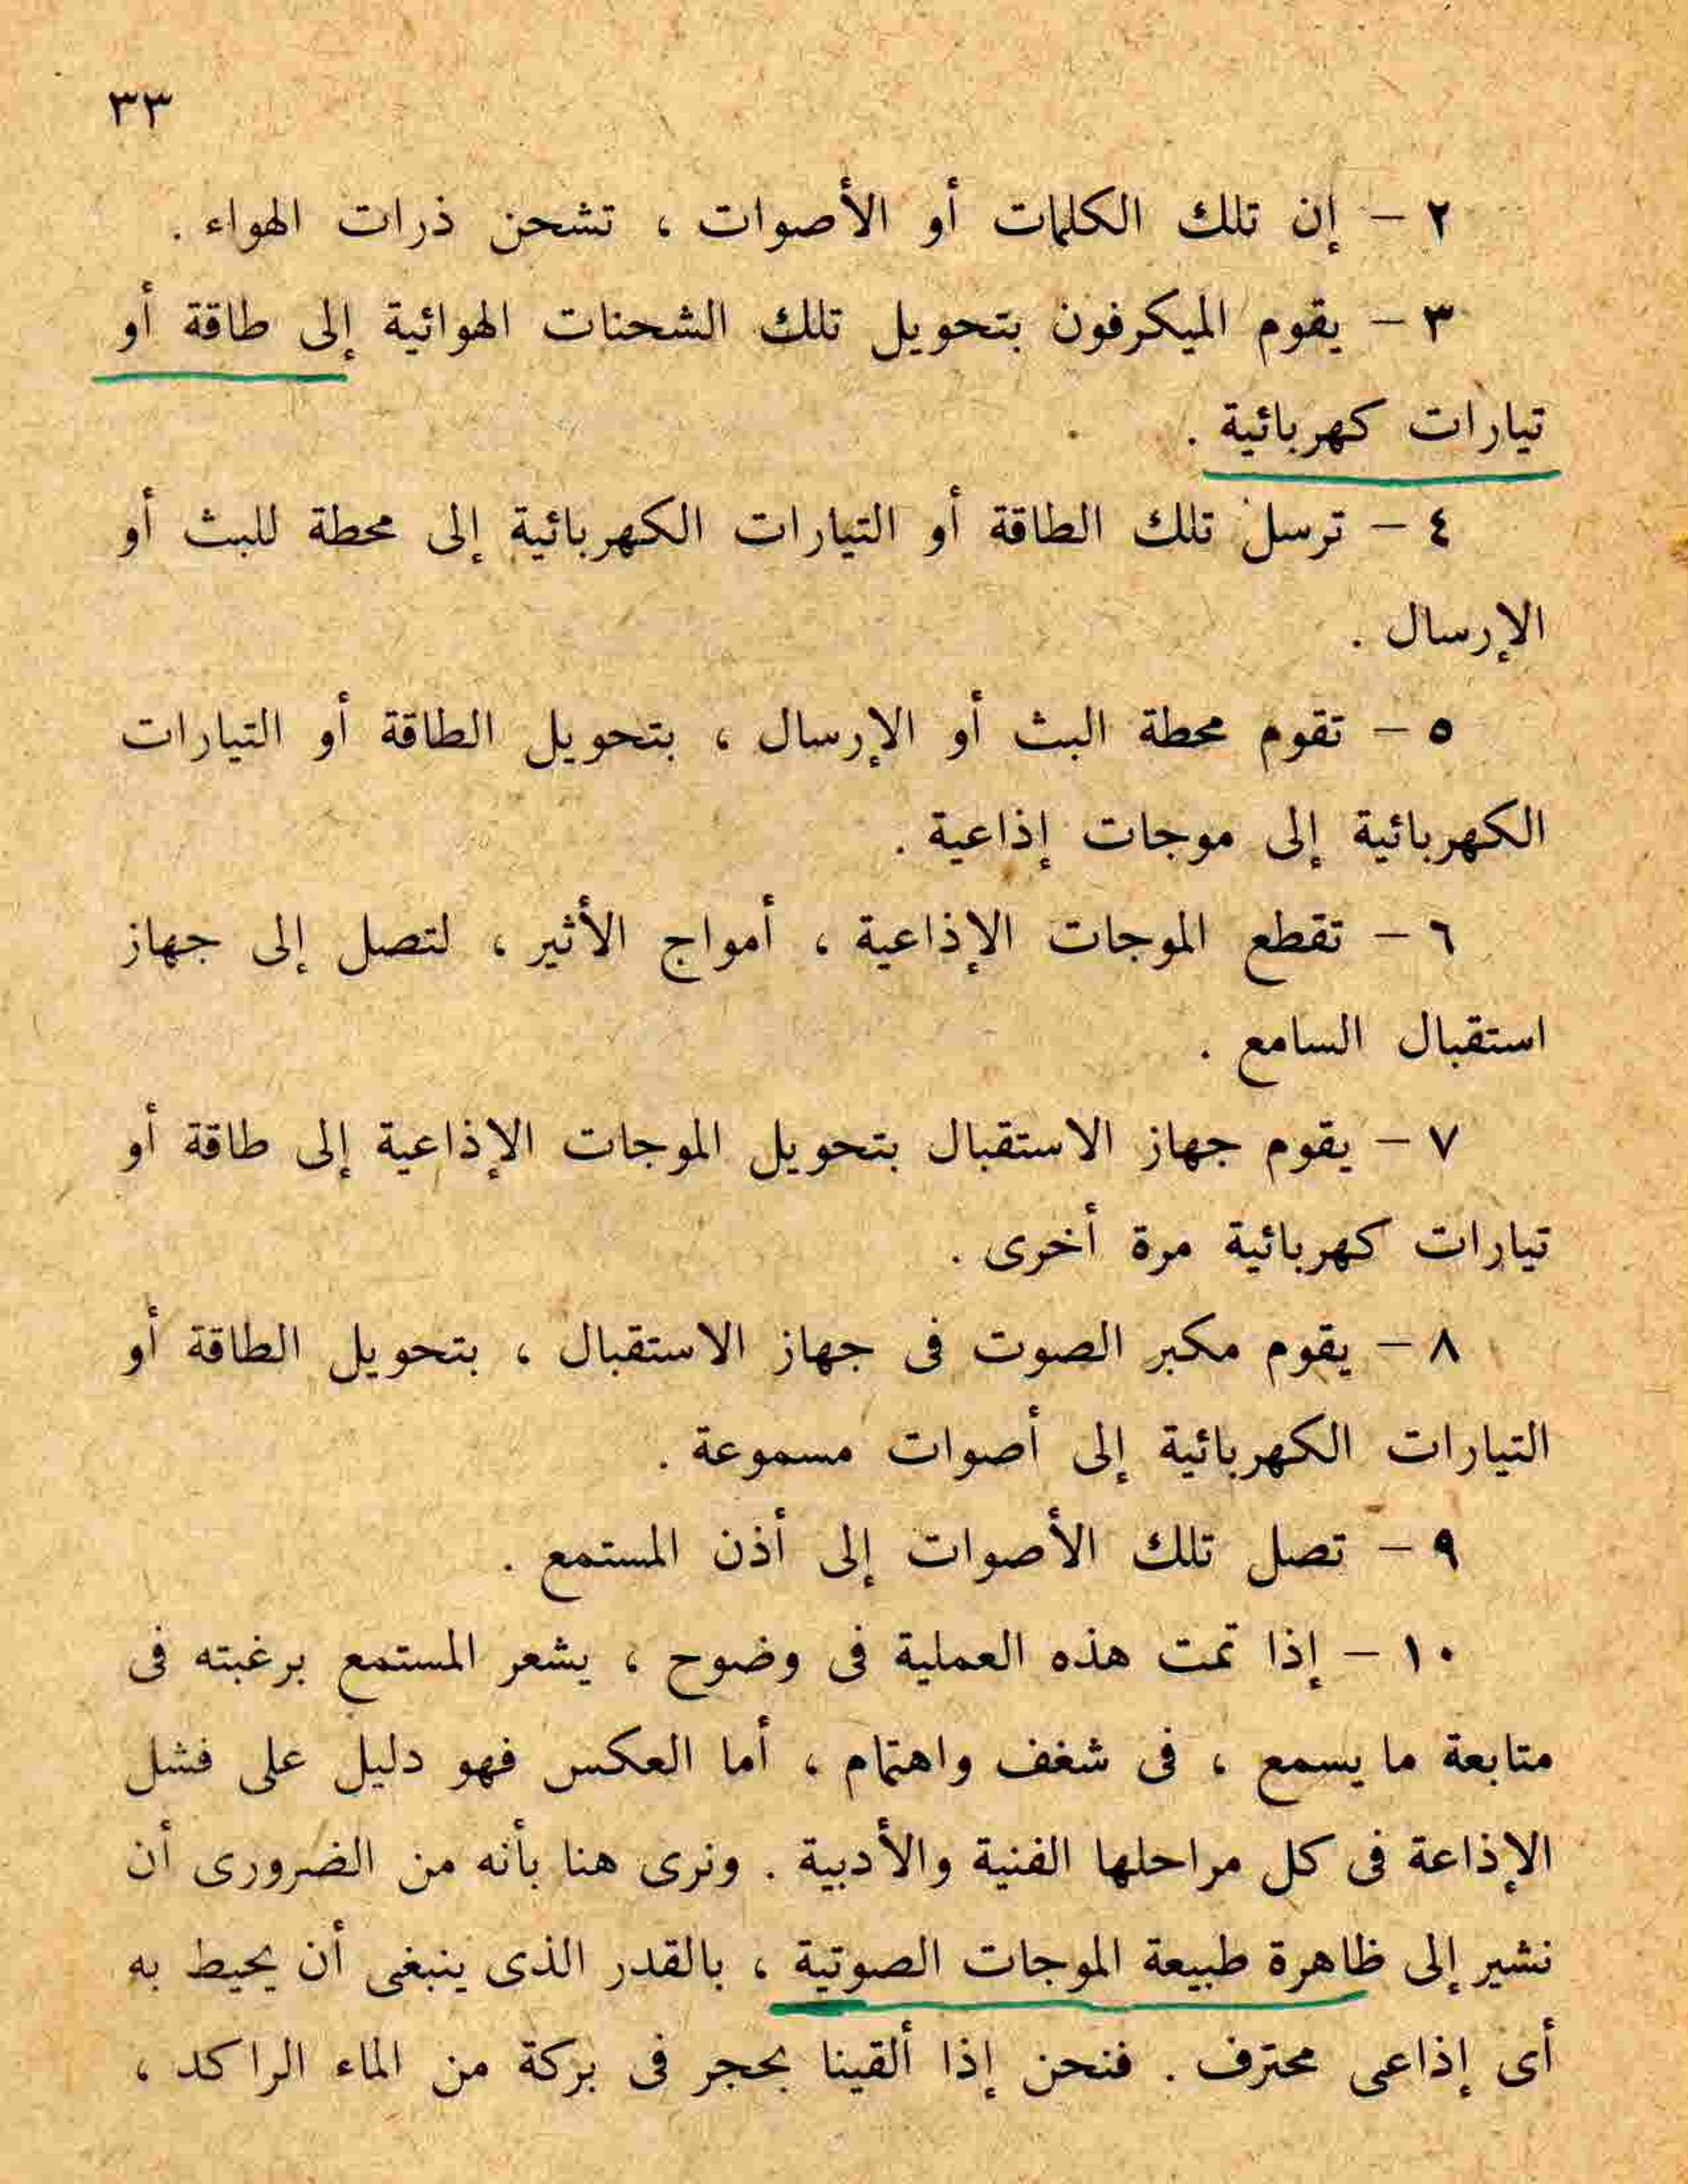 ٣٣
٢ – إن تلك الكلمات أو الأصوات ، تشحن ذرات الهواء .
٣ – يقوم الميكرفون بتحويل تلك الشحنات الهوائية إلى طاقة أو
تيارات كهربائية .
٤ – ترسل تلك الطاقة أو التيارات الكهربائية إلى محطة للبث أو
الإرسال .
٥ – تقوم محطة البث أو الإرسال ، بتحويل الطاقة أو التيارات
الكهربائية إلى موجات إذاعية .
٦ – تقطع الموجات الإذاعية ، أمواج الأثير ، لتصل إلى جهاز
استقبال السامع .
٧ – يقوم جهاز الاستقبال بتحويل الموجات الإذاعية إلى طاقة أو
تيارات كهربائية مرة أخرى .
٨ – يقوم مكبر الصوت فى جهاز الاستقبال ، بتحويل الطاقة أو
التيارات الكهربائية إلى أصوات مسموعة .
٩ – تصل تلك الأصوات إلى أذن المستمع .
١٠ – إذا تمت هذه العملية فى وضوح ، يشعر المستمع برغبته فى
متابعة ما يسمع ، فى شغف واهتمام ، أما العكس فهو دليل على فشل
الإذاعة فى كل مراحلها الفنية والأدبية . ونرى هنا بأنه من الضرورى أن
نشير إلى ظاهرة طبيعة الموجات الصوتية ، بالقدر الذى ينبغى أن يحيط به
أى إذاعى محترف . فنحن إذا ألقينا بحجر فى بركة من الماء الراكد ،